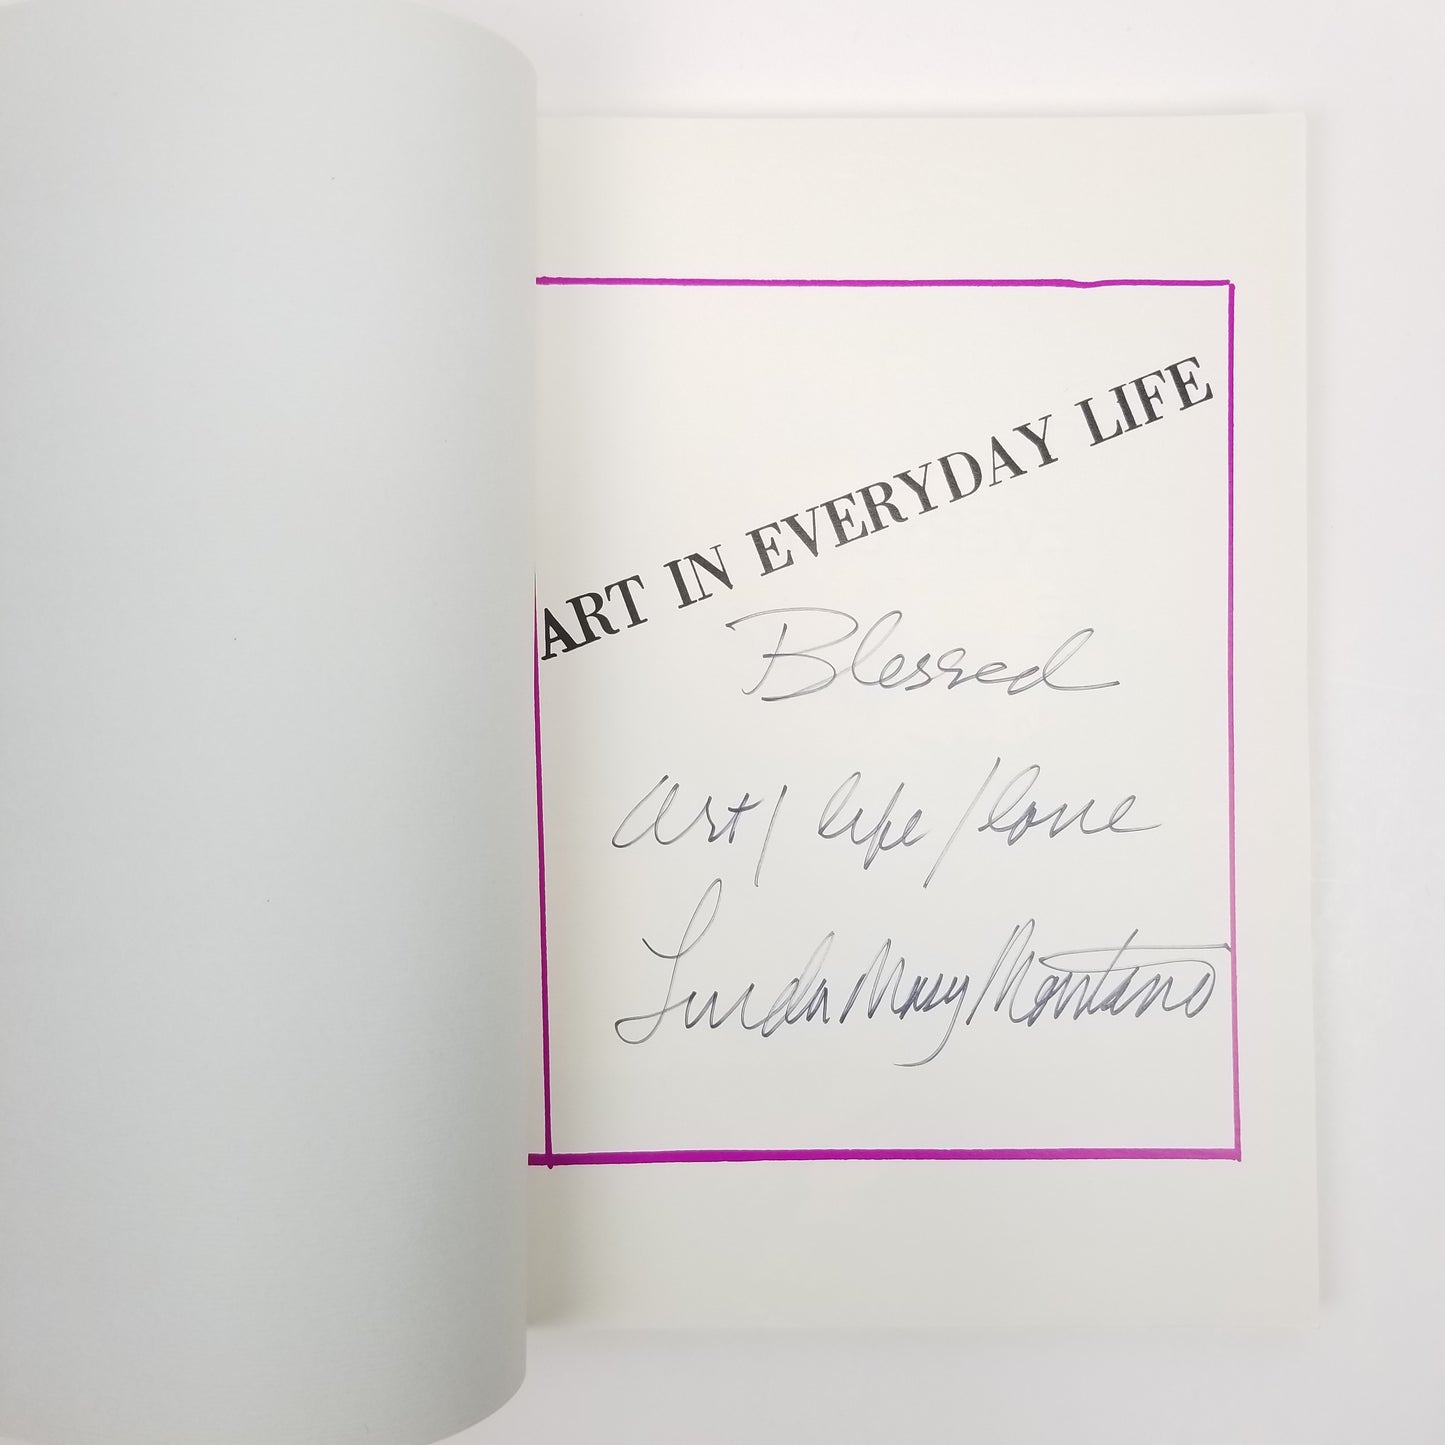 ART IN EVERYDAY LIFE
Blessed
Art / life / love
Linda Mary Montano